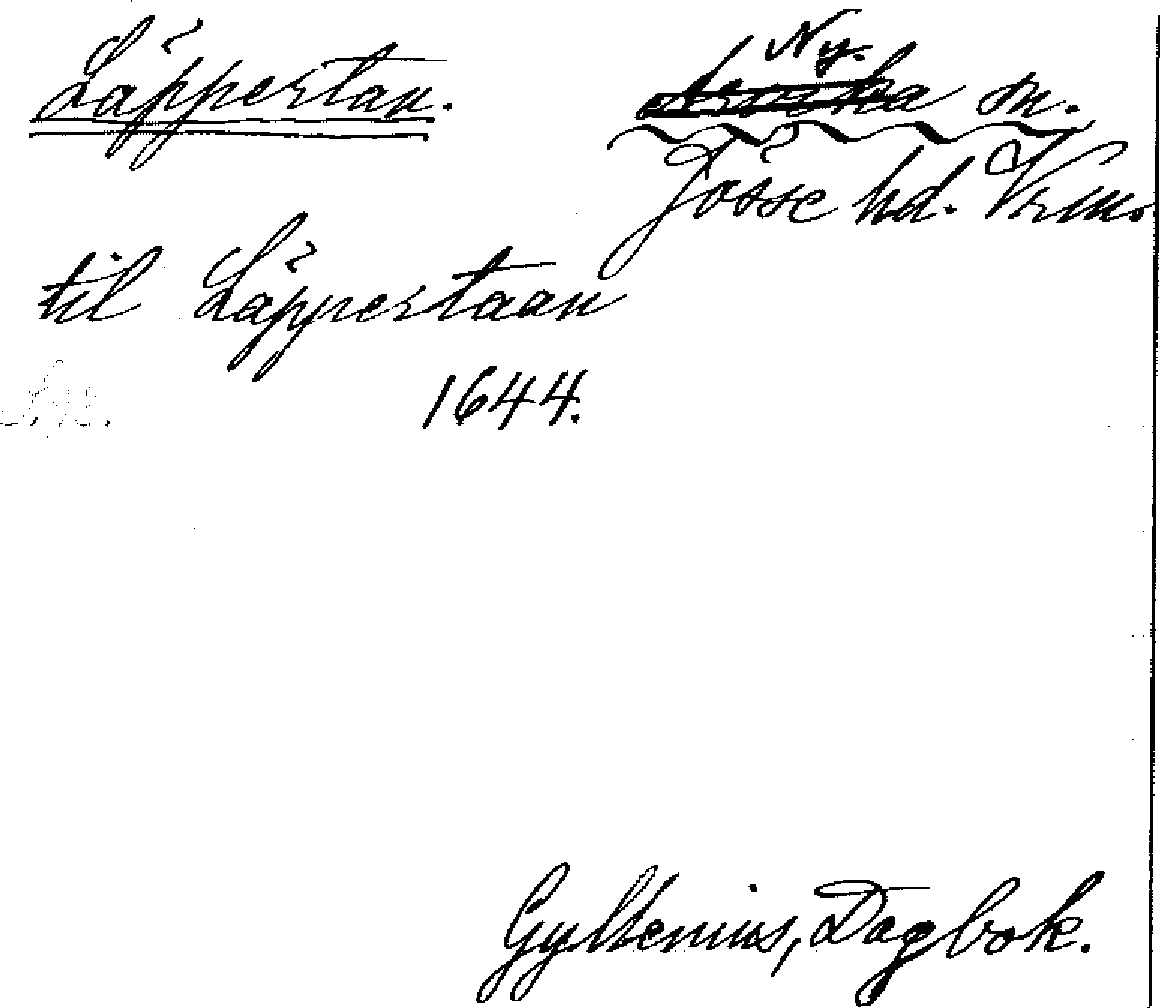 Läppertan. Ny.
m.
Jösse hd. Vrml.
til Läppertaan
1644.
Gyltenius, Dagbok.